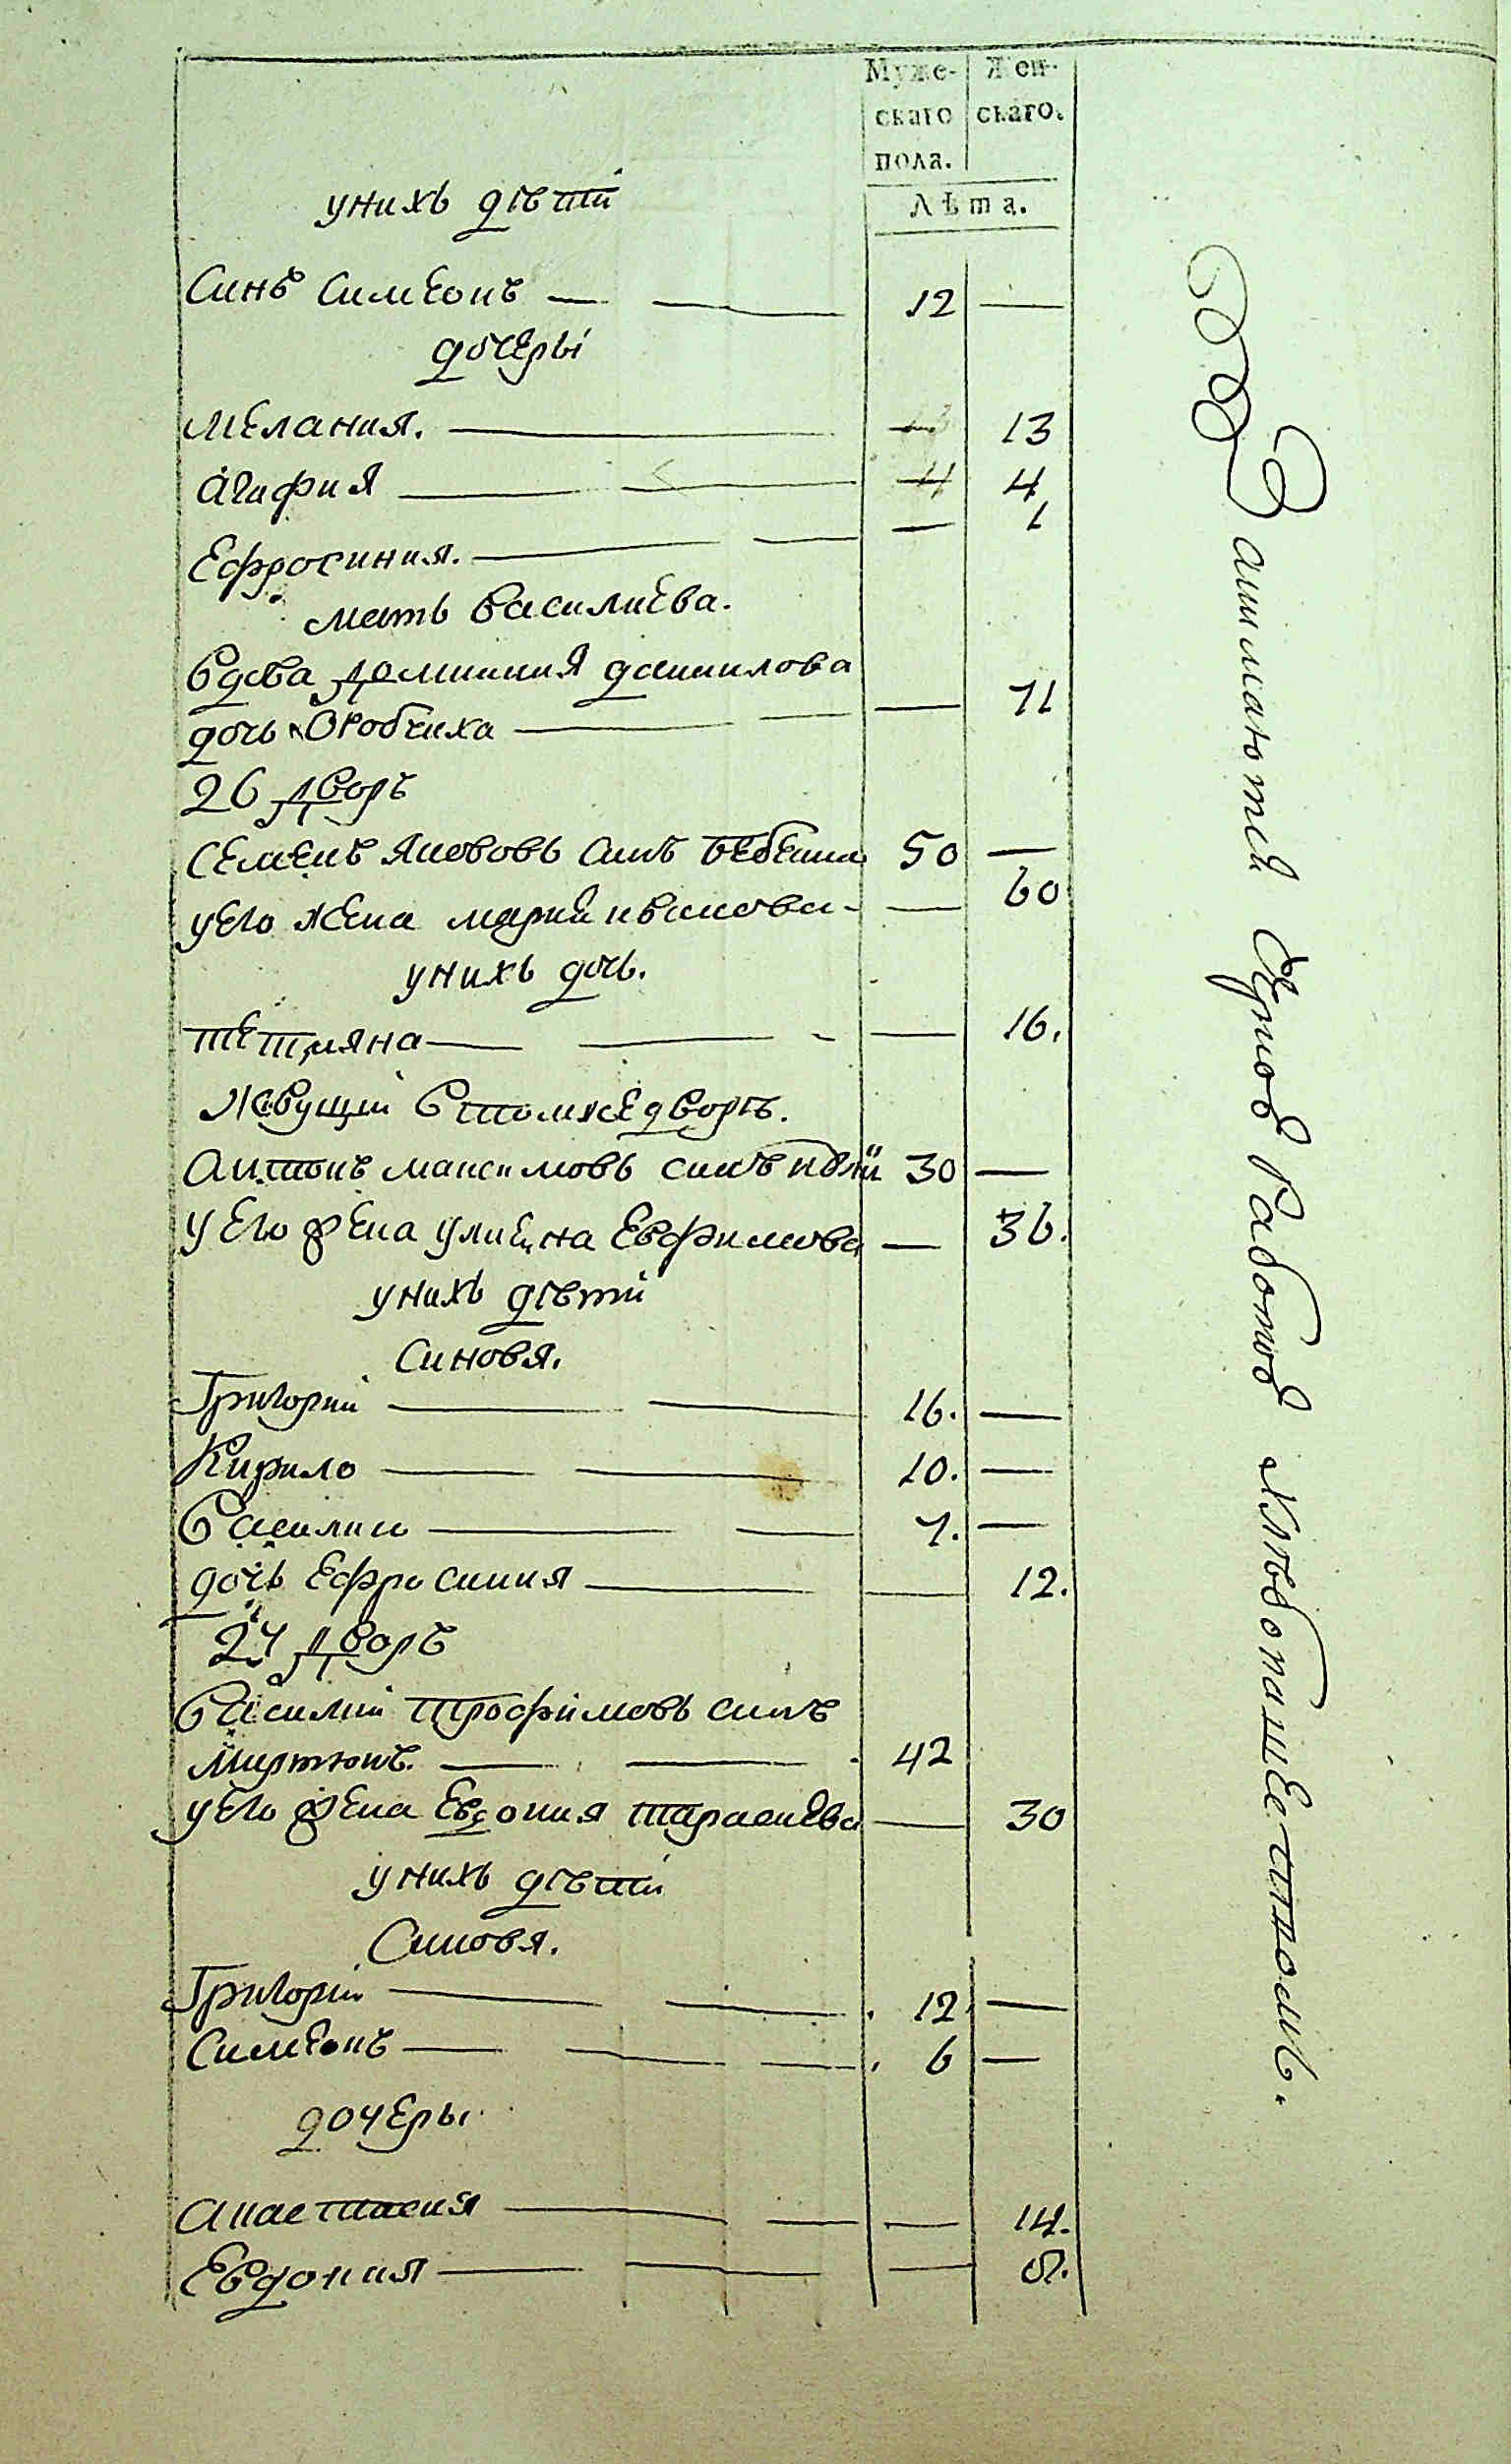 Муже- Жен-
скаго скаго.
пола.
Лѣта.
у нихъ дѣти
Синъ Симеонъ — — 12 —
дочеры
Мелания. — 13
Агафия — — — 4
Ефросиния. — — — 1
мать василиева.
Вдова домникия данилова
дочь Скобчиха — — — 71
26 дворъ
Семенъ Якововъ синъ 50 —
у его жена мария иванова - — 60
у нихъ дочь.
Тетияна — — - — 16.
Живущии в томже дворѣ.
Антонъ максимовъ синъ 30 —
у его жена улиена Евфимова — 36.
у нихъ дѣти
Синовя.
Григорий — — 16. —
Кирило — — 10. —
Василии — — 7. —
дочь Ефросиния — — 12.
27 дворъ
Василий трофимовъ синъ
Миртюкъ. — — 42
у его жена Евдокия тарасиева — 30
у нихъ дѣти
Синовя.
Григорий — — 12 —
Симеонъ — — — 6 —
дочеры
Анастасия — — — 14.
Евдокия — — — 8.
Занимаются работою хлѣбопашетдомъ.